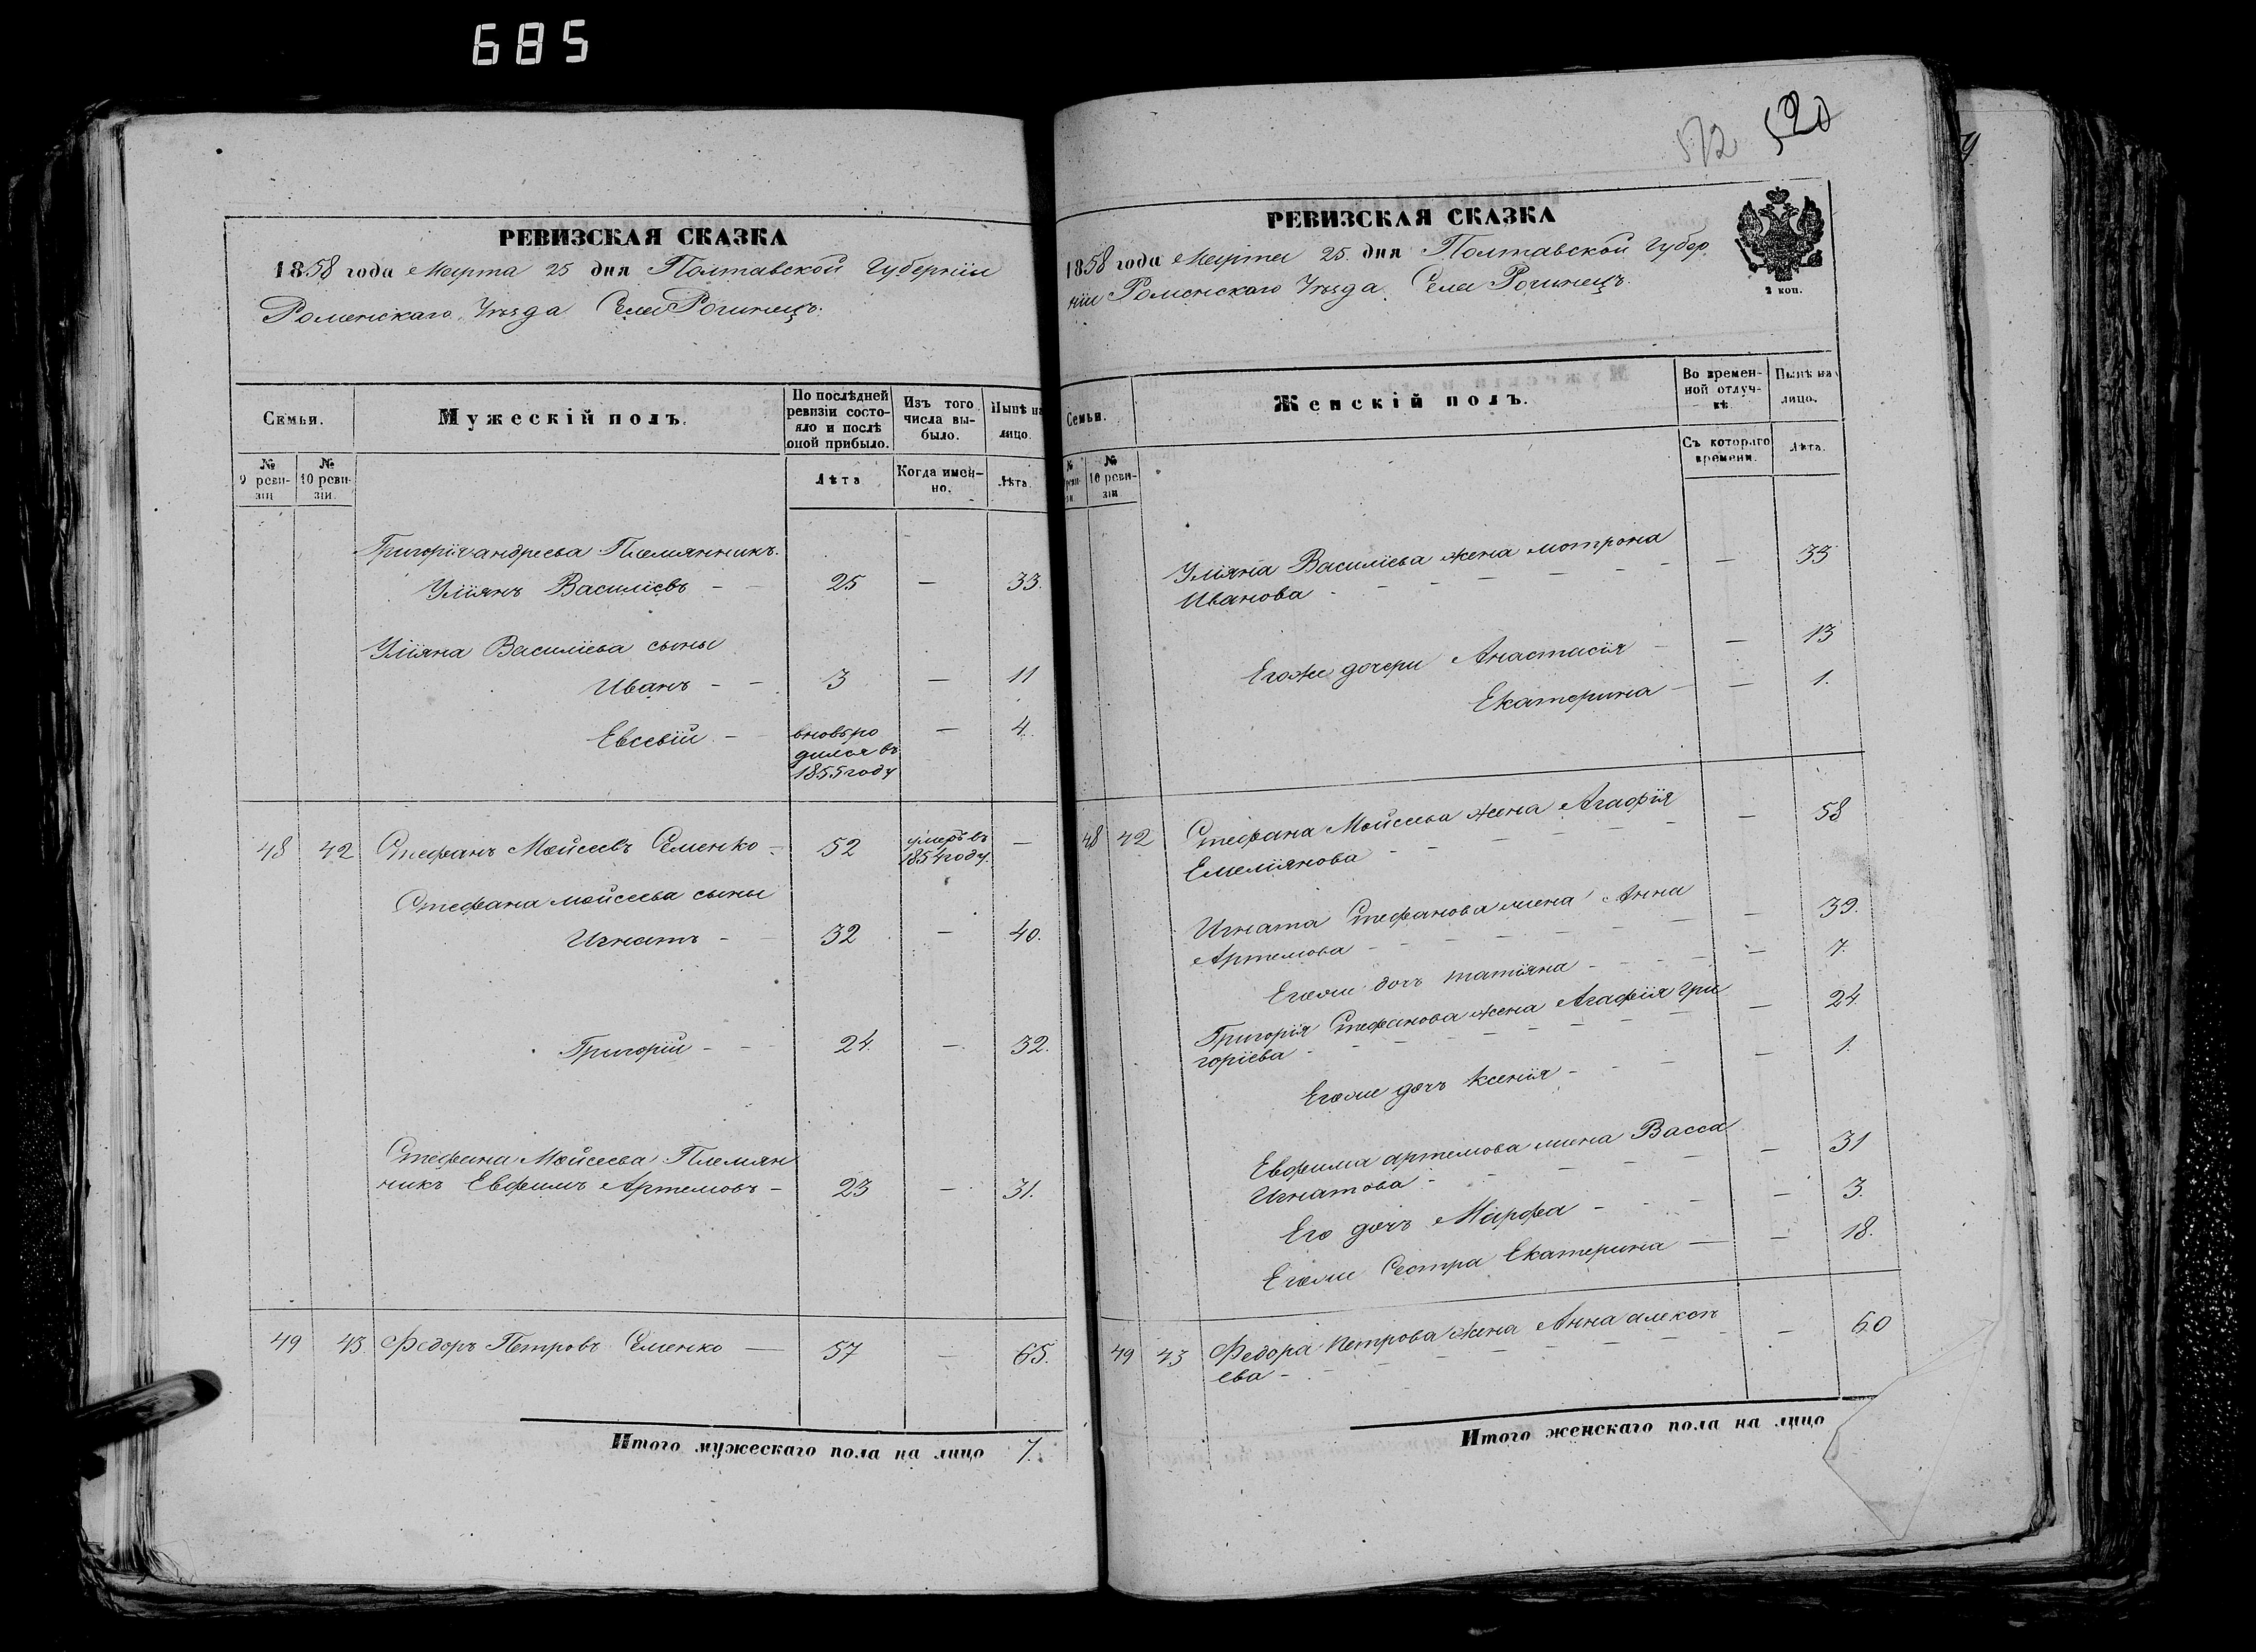 685
РЕВИЗСКАЯ СКАЗКА
1858 года Марта 25 дня Полтавской Губерніи
Роменскаго Уѣзда Села Рогинецъ.
Семьи.
Мужескій полъ.
По послѣдней ревизіи состояло и послѣ оной прибыло.
Изъ того числа выбыло.
Нынѣ на лицо.
№ 9 ревизіи
№ 10 ревизіи.
Лѣта
Когда именно.
Лѣта.
Григорія андреева Племянникъ.
Уліянъ Василіевъ - - 25 — 33.
Уліяна Василіева сыны
Иванъ - - 3 — 11
Евсевій - вновь ро — 4.
дился въ
1855 году
48 42 Стефанъ Мойсеевъ Семенко - 52 умеръ въ —
1854 году.
Стефана мойсеева сыны
Игнатъ - - 32 — 40.
Григорій - - 24. — 32.
Стефана Мойсеева Племян
никъ Евфимъ Артемовъ - 23 — 31.
49 43. Федоръ Петровъ Семенко — 57 — 65.
Итого мужескаго пола на лицо 7.
572 520
РЕВИЗСКАЯ СКАЗКА
1858 года Марта 25. дня Полтавской Губер
ніи Роменскаго Уѣзда Села Рогинецъ.
2 коп.
Семьи.
Женскій полъ.
Во временной отлучкѣ.
Нынѣ на лицо.
№ ревизіи.
№ 10 ревизіи
Съ котораго времени.
Лѣта.
Уліяна Василіева жена мотрона
Иванова - - - - - - — 33
Егоже дочери Анастасія - — 13
Екатерина - — 1.
48 42 Стефана Мойсеева жена Агафія
Емеліянова - - - - - — 58
Игната Стефанова жена Анна
Артемова - - - - - — 39.
Егоже дочь татіяна - - - — 7.
Григорія Стефанова жена Агафія гри
горіева - - - - - — 24
Егоже дочь Ксенія - - - — 1.
Евфима артемова жена Васса
Игнатова - - - - - — 31
Его дочь Марфа - - - — 3.
Егоже Сестра Екатерина — — 18.
49 43 Федора петрова жена Анна алекс
ева - - - - - - — 60
Итого женскаго пола на лицо